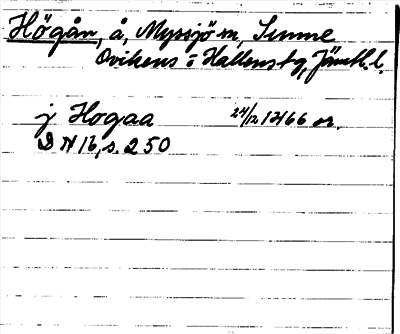 Högån, å, Myssjö sn, Sunne
Ovikens o Hallens tg, Jämtl. l.
j Hogaa 24/12 1466 or.
DN 16, s. 250